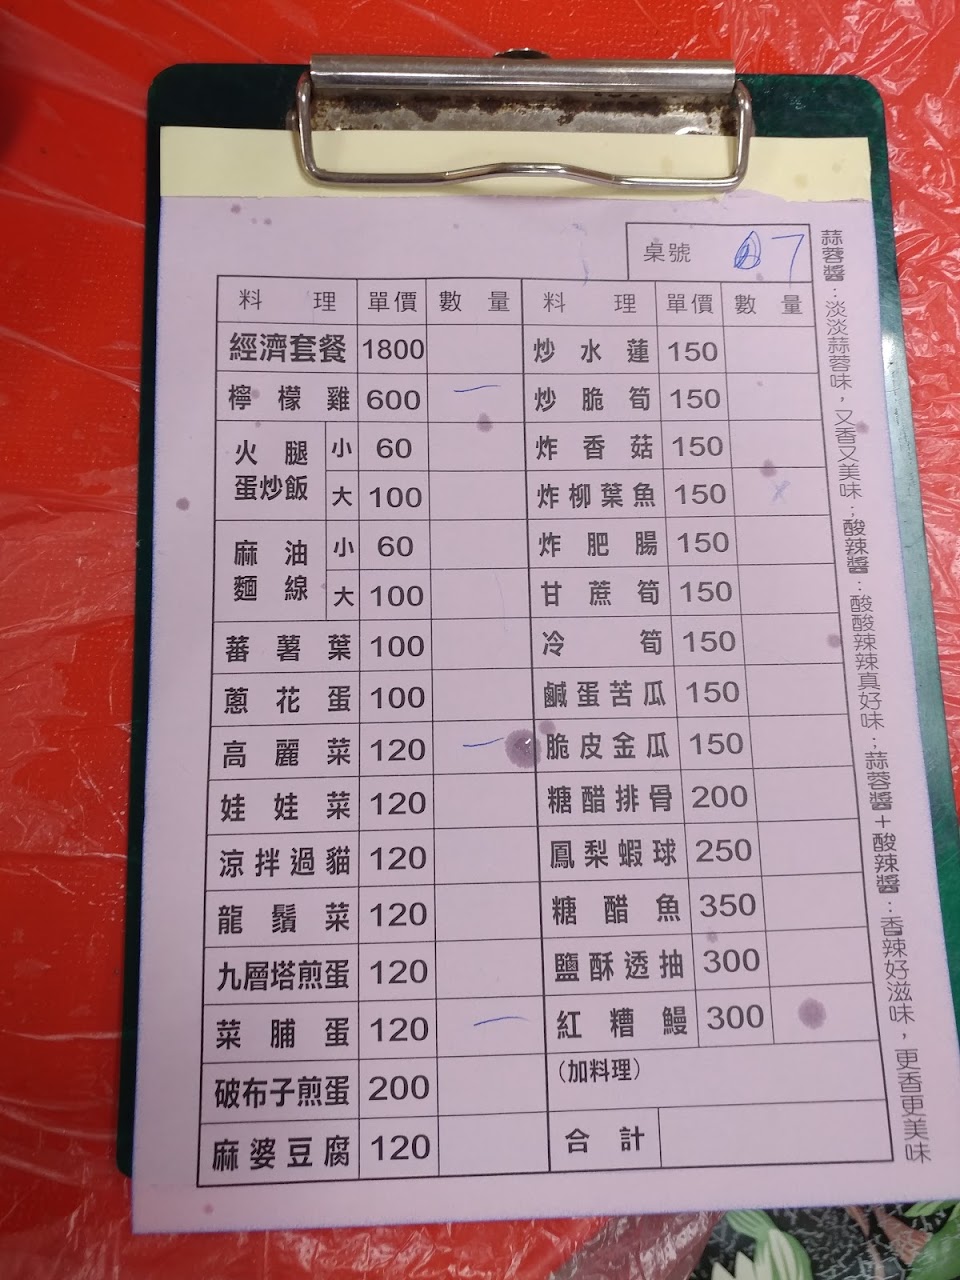 桌號 7
料理 單價 數量 料理 單價 數量
經濟套餐 1800 炒水蓮 150
檸檬雞 600 一 炒脆筍 150
火腿蛋炒飯 小 60 炸香菇 150
大 100 炸柳葉魚 150 x
麻油麵線 小 60 炸肥腸 150
大 100 甘蔗筍 150
蕃薯葉 100 冷筍 150
蔥花蛋 100 鹹蛋苦瓜 150
高麗菜 120 一 脆皮金瓜 150
娃娃菜 120 糖醋排骨 200
涼拌過貓 120 鳳梨蝦球 250
龍鬚菜 120 糖醋魚 350
九層塔煎蛋 120 鹽酥透抽 300
菜脯蛋 120 一 紅糟鰻 300
破布子煎蛋 200 (加料理)
麻婆豆腐 120 合計
蒜蓉醬：淡淡蒜蓉味，又香又美味；酸辣醬：酸酸辣辣真好味；蒜蓉醬＋酸辣醬：香辣好滋味，更香更美味